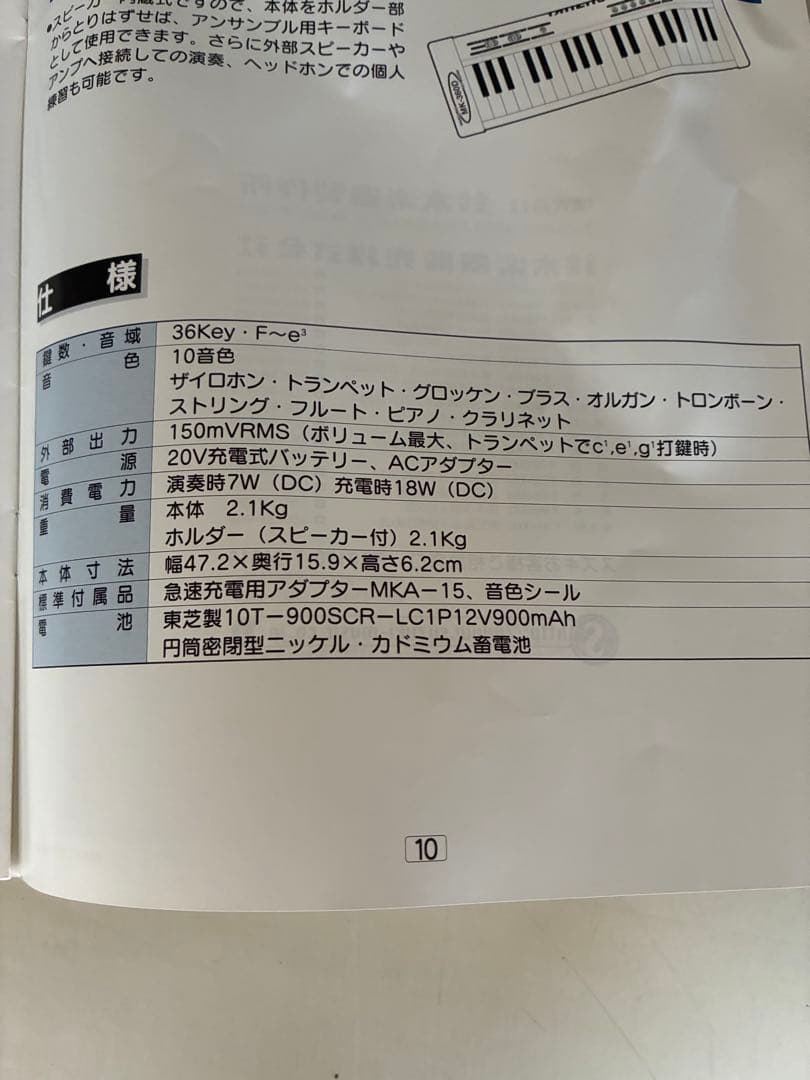 ●スピーカー内蔵式ですので、本体をホルダー部
からとりはずせば、アンサンブル用キーボード
として使用できます。さらに外部スピーカーや
アンプへ接続しての演奏、ヘッドホンでの個人
練習も可能です。
MK-3600
仕様
鍵数・音域 36Key・F〜e³
音色 10音色
ザイロホン・トランペット・グロッケン・ブラス・オルガン・トロンボーン・
ストリング・フルート・ピアノ・クラリネット
外部出力 150mVRMS（ボリューム最大、トランペットでc¹,e¹,g¹打鍵時）
電源 20V充電式バッテリー、ACアダプター
消費電力 演奏時7W（DC）充電時18W（DC）
重量 本体 2.1Kg
ホルダー（スピーカー付）2.1Kg
本体寸法 幅47.2×奥行15.9×高さ6.2cm
標準付属品 急速充電用アダプターMKA−15、音色シール
電池 東芝製10T−900SCR−LC1P12V900mAh
円筒密閉型ニッケル・カドミウム畜電池
10